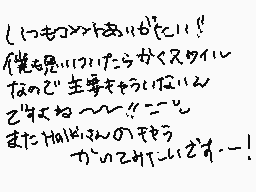 いつもコメントありがたい!!
僕も思いついたらかくスタイル
なので主要キャラいないん
ですよね〜〜!!
また Haiki さんのキャラ
かいてみたいです・ー!